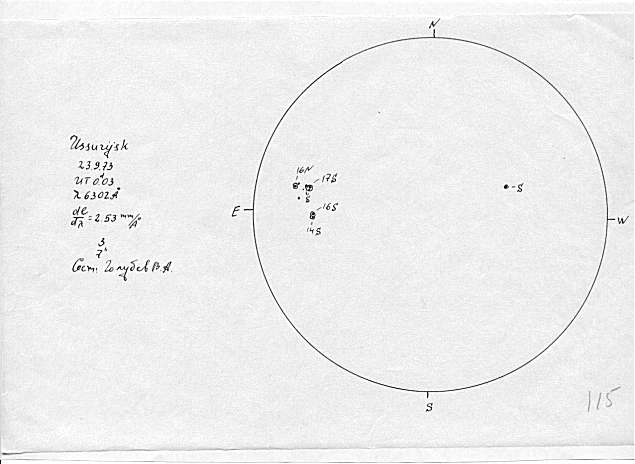 N
Ussurijsk
23.9.73
UT 0ᵈ.03
λ 6302 Åͦ
dℓ/dλ = 2.53 mm/Å
3
Сост. Голубев В.А.
16N
17S
S
16S
14S
S
E
W
S
115